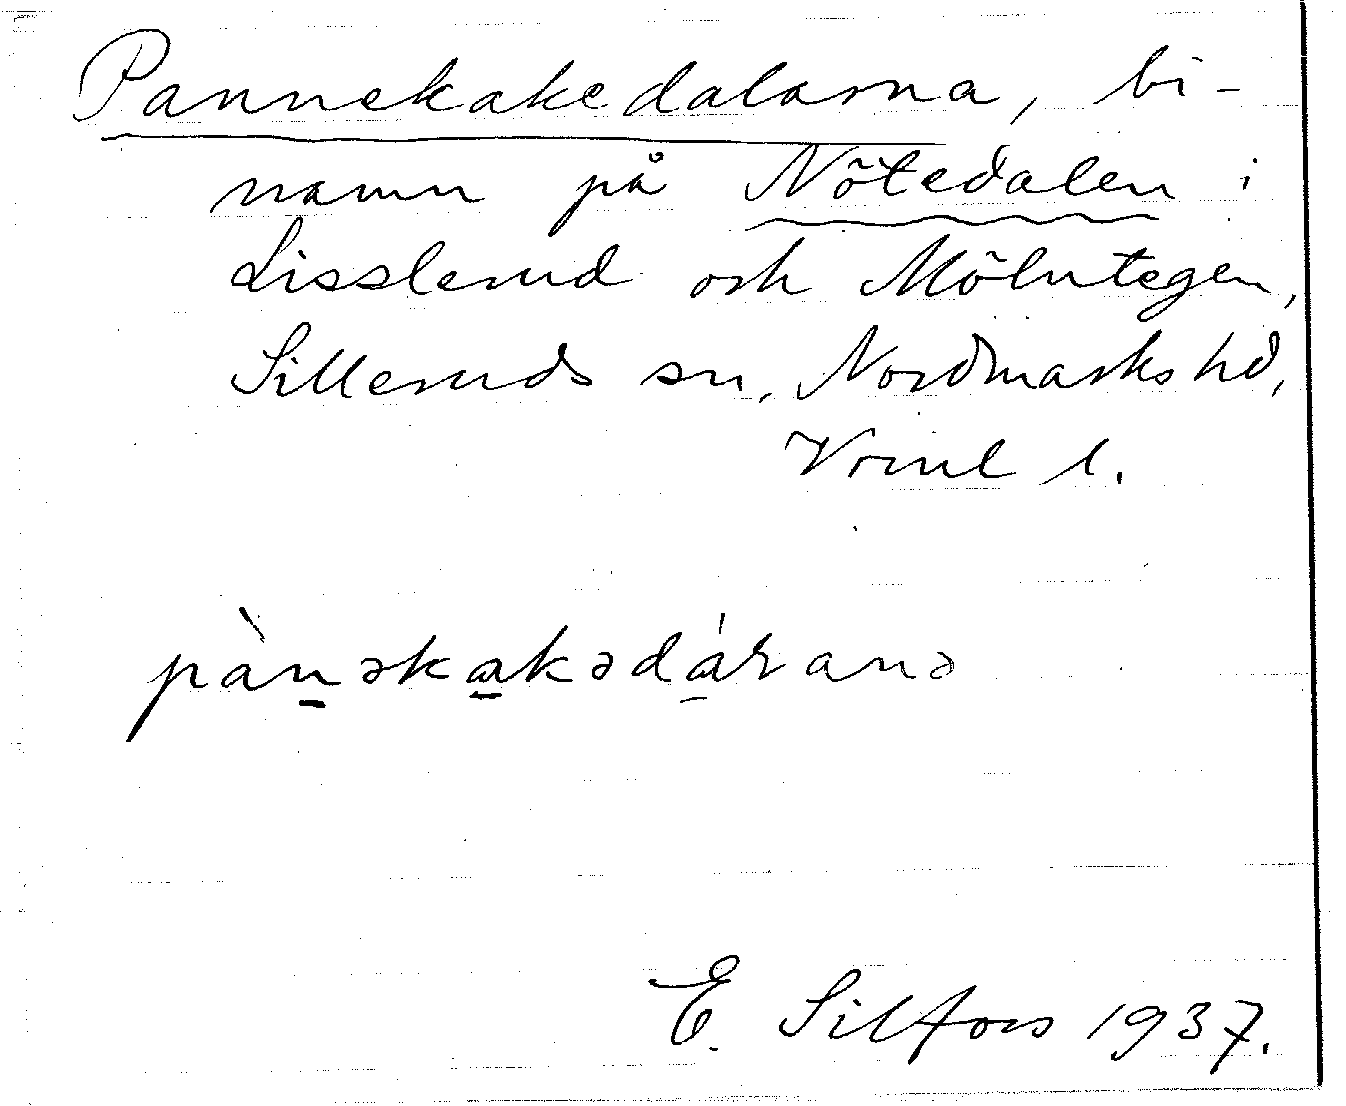 Pannekakedalarna, bi-
namn på Nötedalen i
Lisslerud och Mölntegen,
Silleruds sn, Nordmarks hd,
Värml l.
pànəkakədáʀanə
E. Silfors 1937.